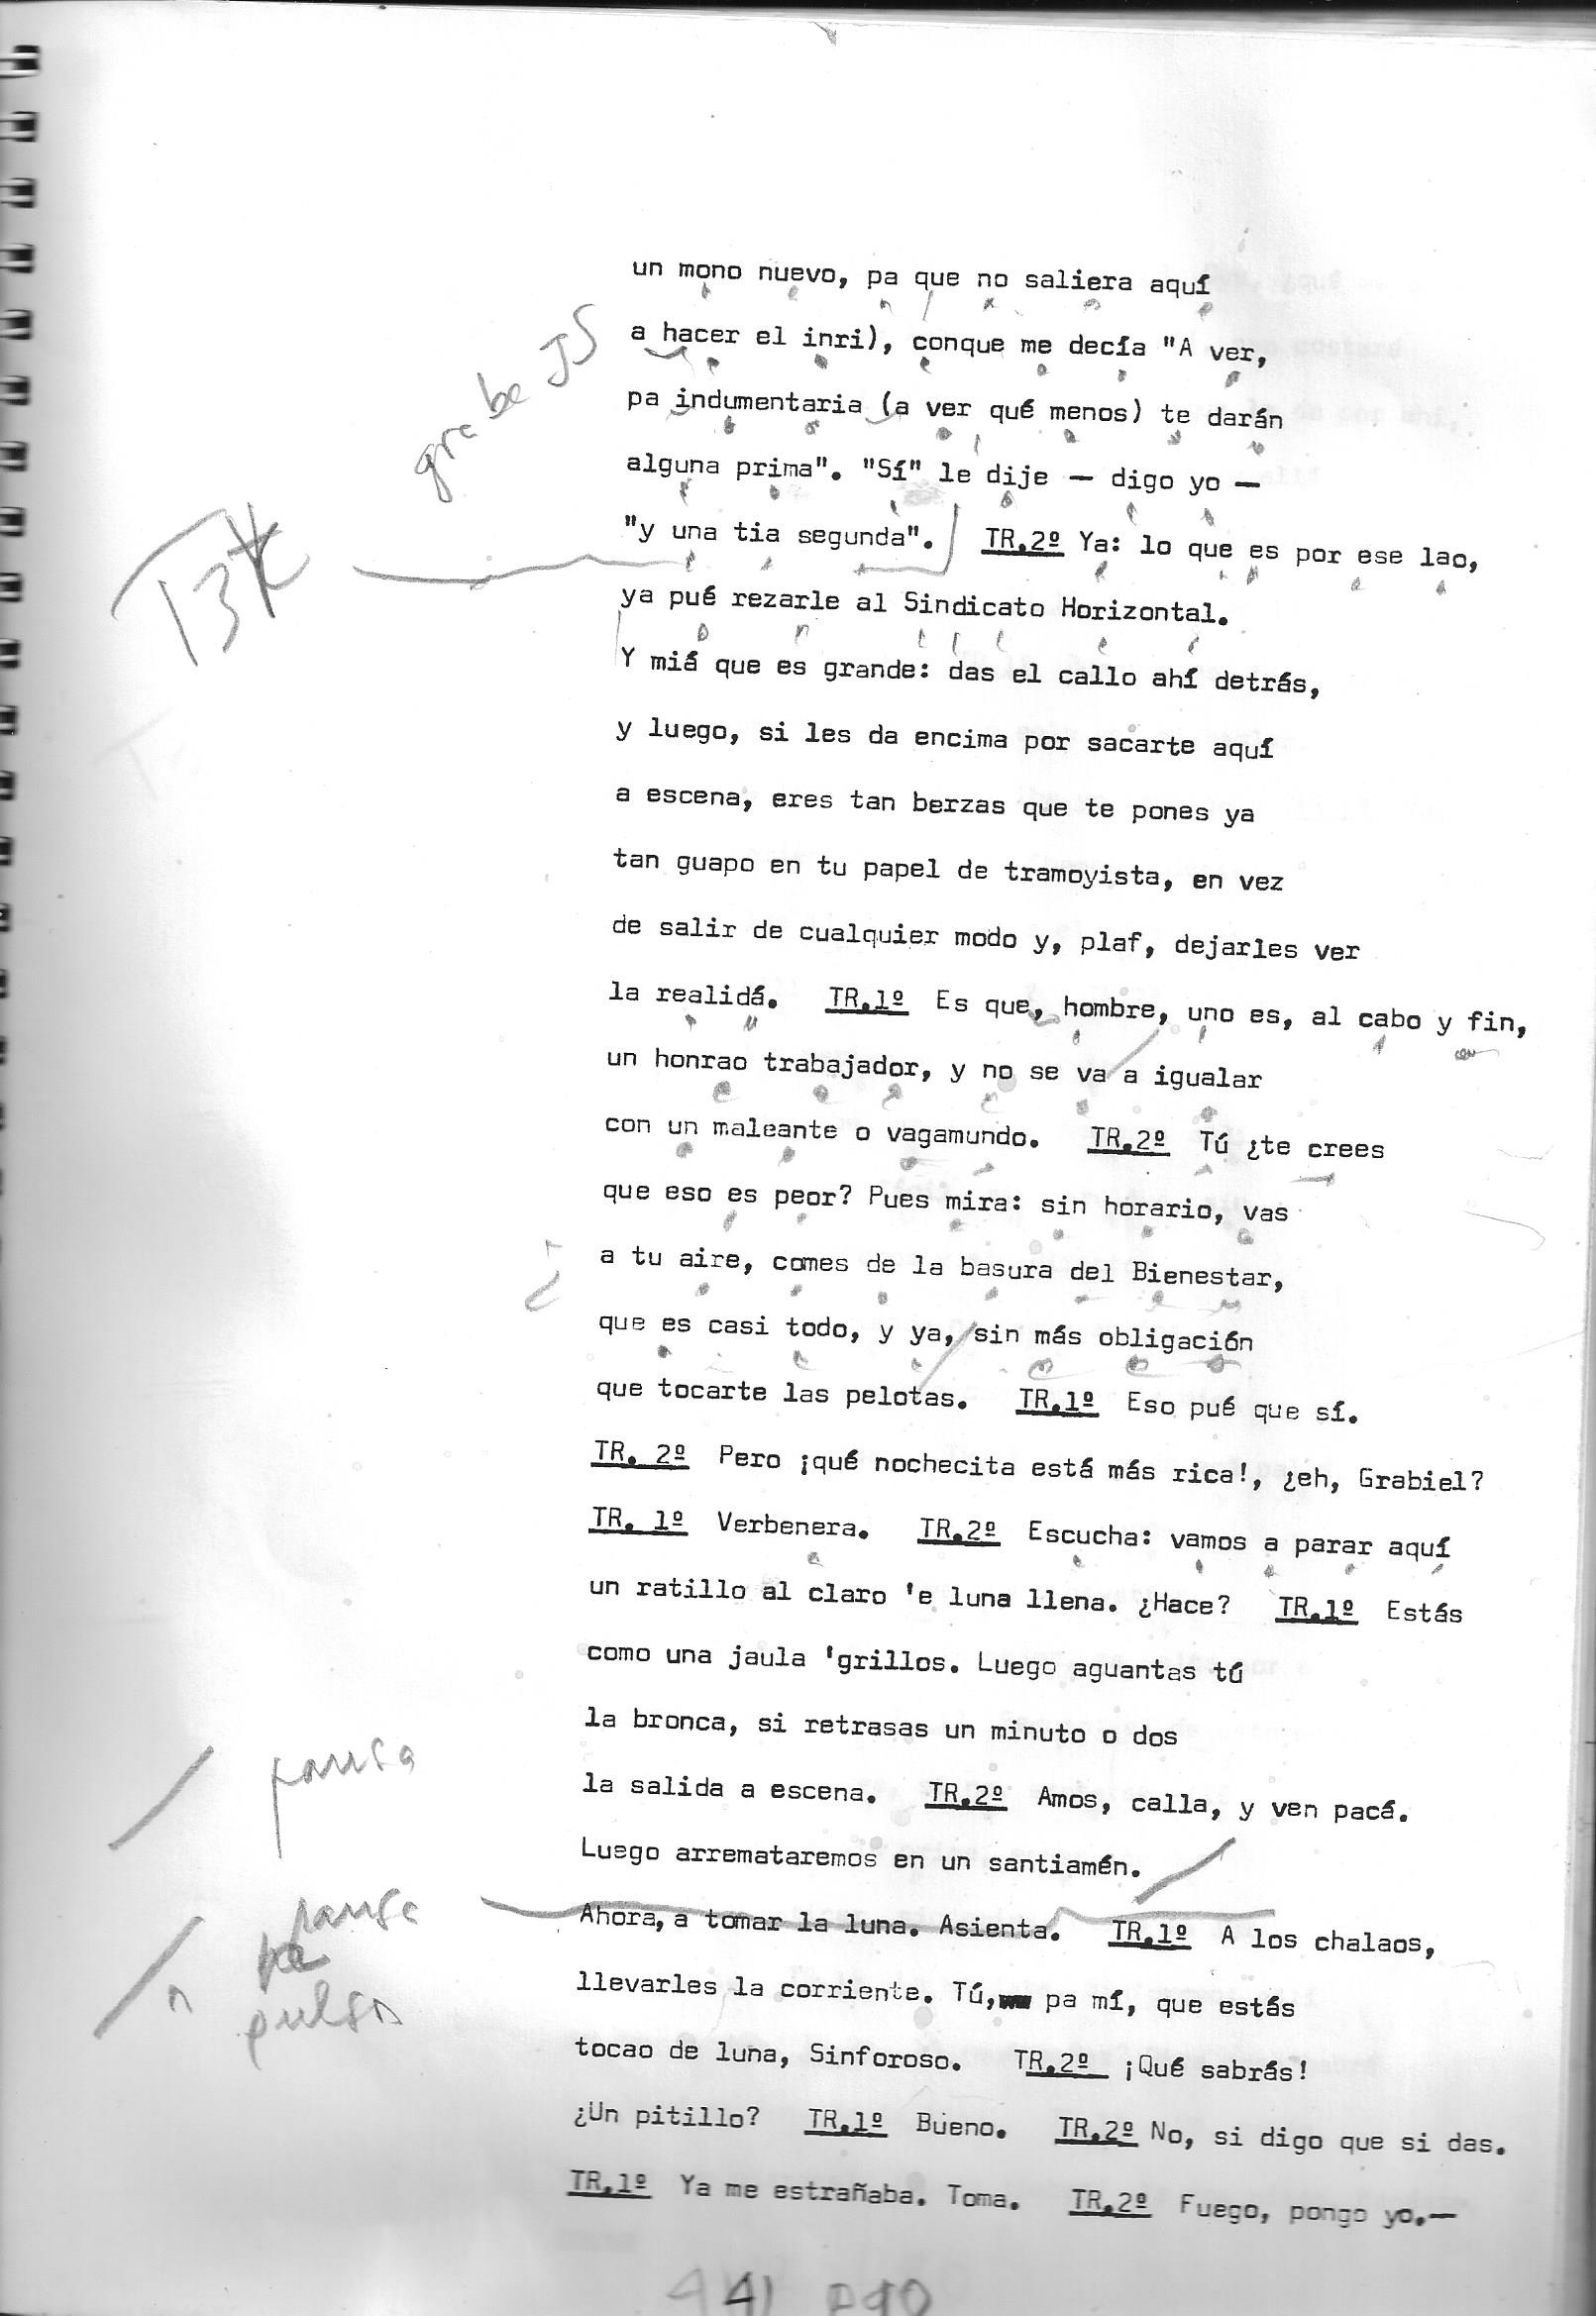 un mono nuevo, pa que no saliera aquí
grabe JS
a hacer el inri), conque me decía "A ver,
pa indumentaria (a ver qué menos) te darán
alguna prima". "Sí" le dije — digo yo —
T3
"y una tia segunda". TR.2º Ya: lo que es por ese lao,
ya pué rezarle al Sindicato Horizontal.
Y miá que es grande: das el callo ahí detrás,
y luego, si les da encima por sacarte aquí
a escena, eres tan berzas que te pones ya
tan guapo en tu papel de tramoyista, en vez
de salir de cualquier modo y, plaf, dejarles ver
la realidá. TR.1º Es que, hombre, uno es, al cabo y fin,
un honrao trabajador, y no se va a igualar
con un maleante o vagamundo. TR.2º Tú ¿te crees
que eso es peor? Pues mira: sin horario, vas
a tu aire, comes de la basura del Bienestar,
que es casi todo, y ya, sin más obligación
que tocarte las pelotas. TR.1º Eso pué que sí.
TR. 2º Pero ¡qué nochecita está más rica!, ¿eh, Grabiel?
TR. 1º Verbenera. TR.2º Escucha: vamos a parar aquí
un ratillo al claro 'e luna llena. ¿Hace? TR.1º Estás
como una jaula 'grillos. Luego aguantas tú
la bronca, si retrasas un minuto o dos
pausa
la salida a escena. TR.2º Amos, calla, y ven pacá.
Luego arremataremos en un santiamén.
pausa
Ahora, a tomar la luna. Asienta. TR.1º A los chalaos,
llevarles la corriente. Tú, pa mí, que estás
tocao de luna, Sinforoso. TR.2º ¡Qué sabrás!
¿Un pitillo? TR.1º Bueno. TR.2º No, si digo que si das.
TR.1º Ya me estrañaba. Toma. TR.2º Fuego, pongo yo.—